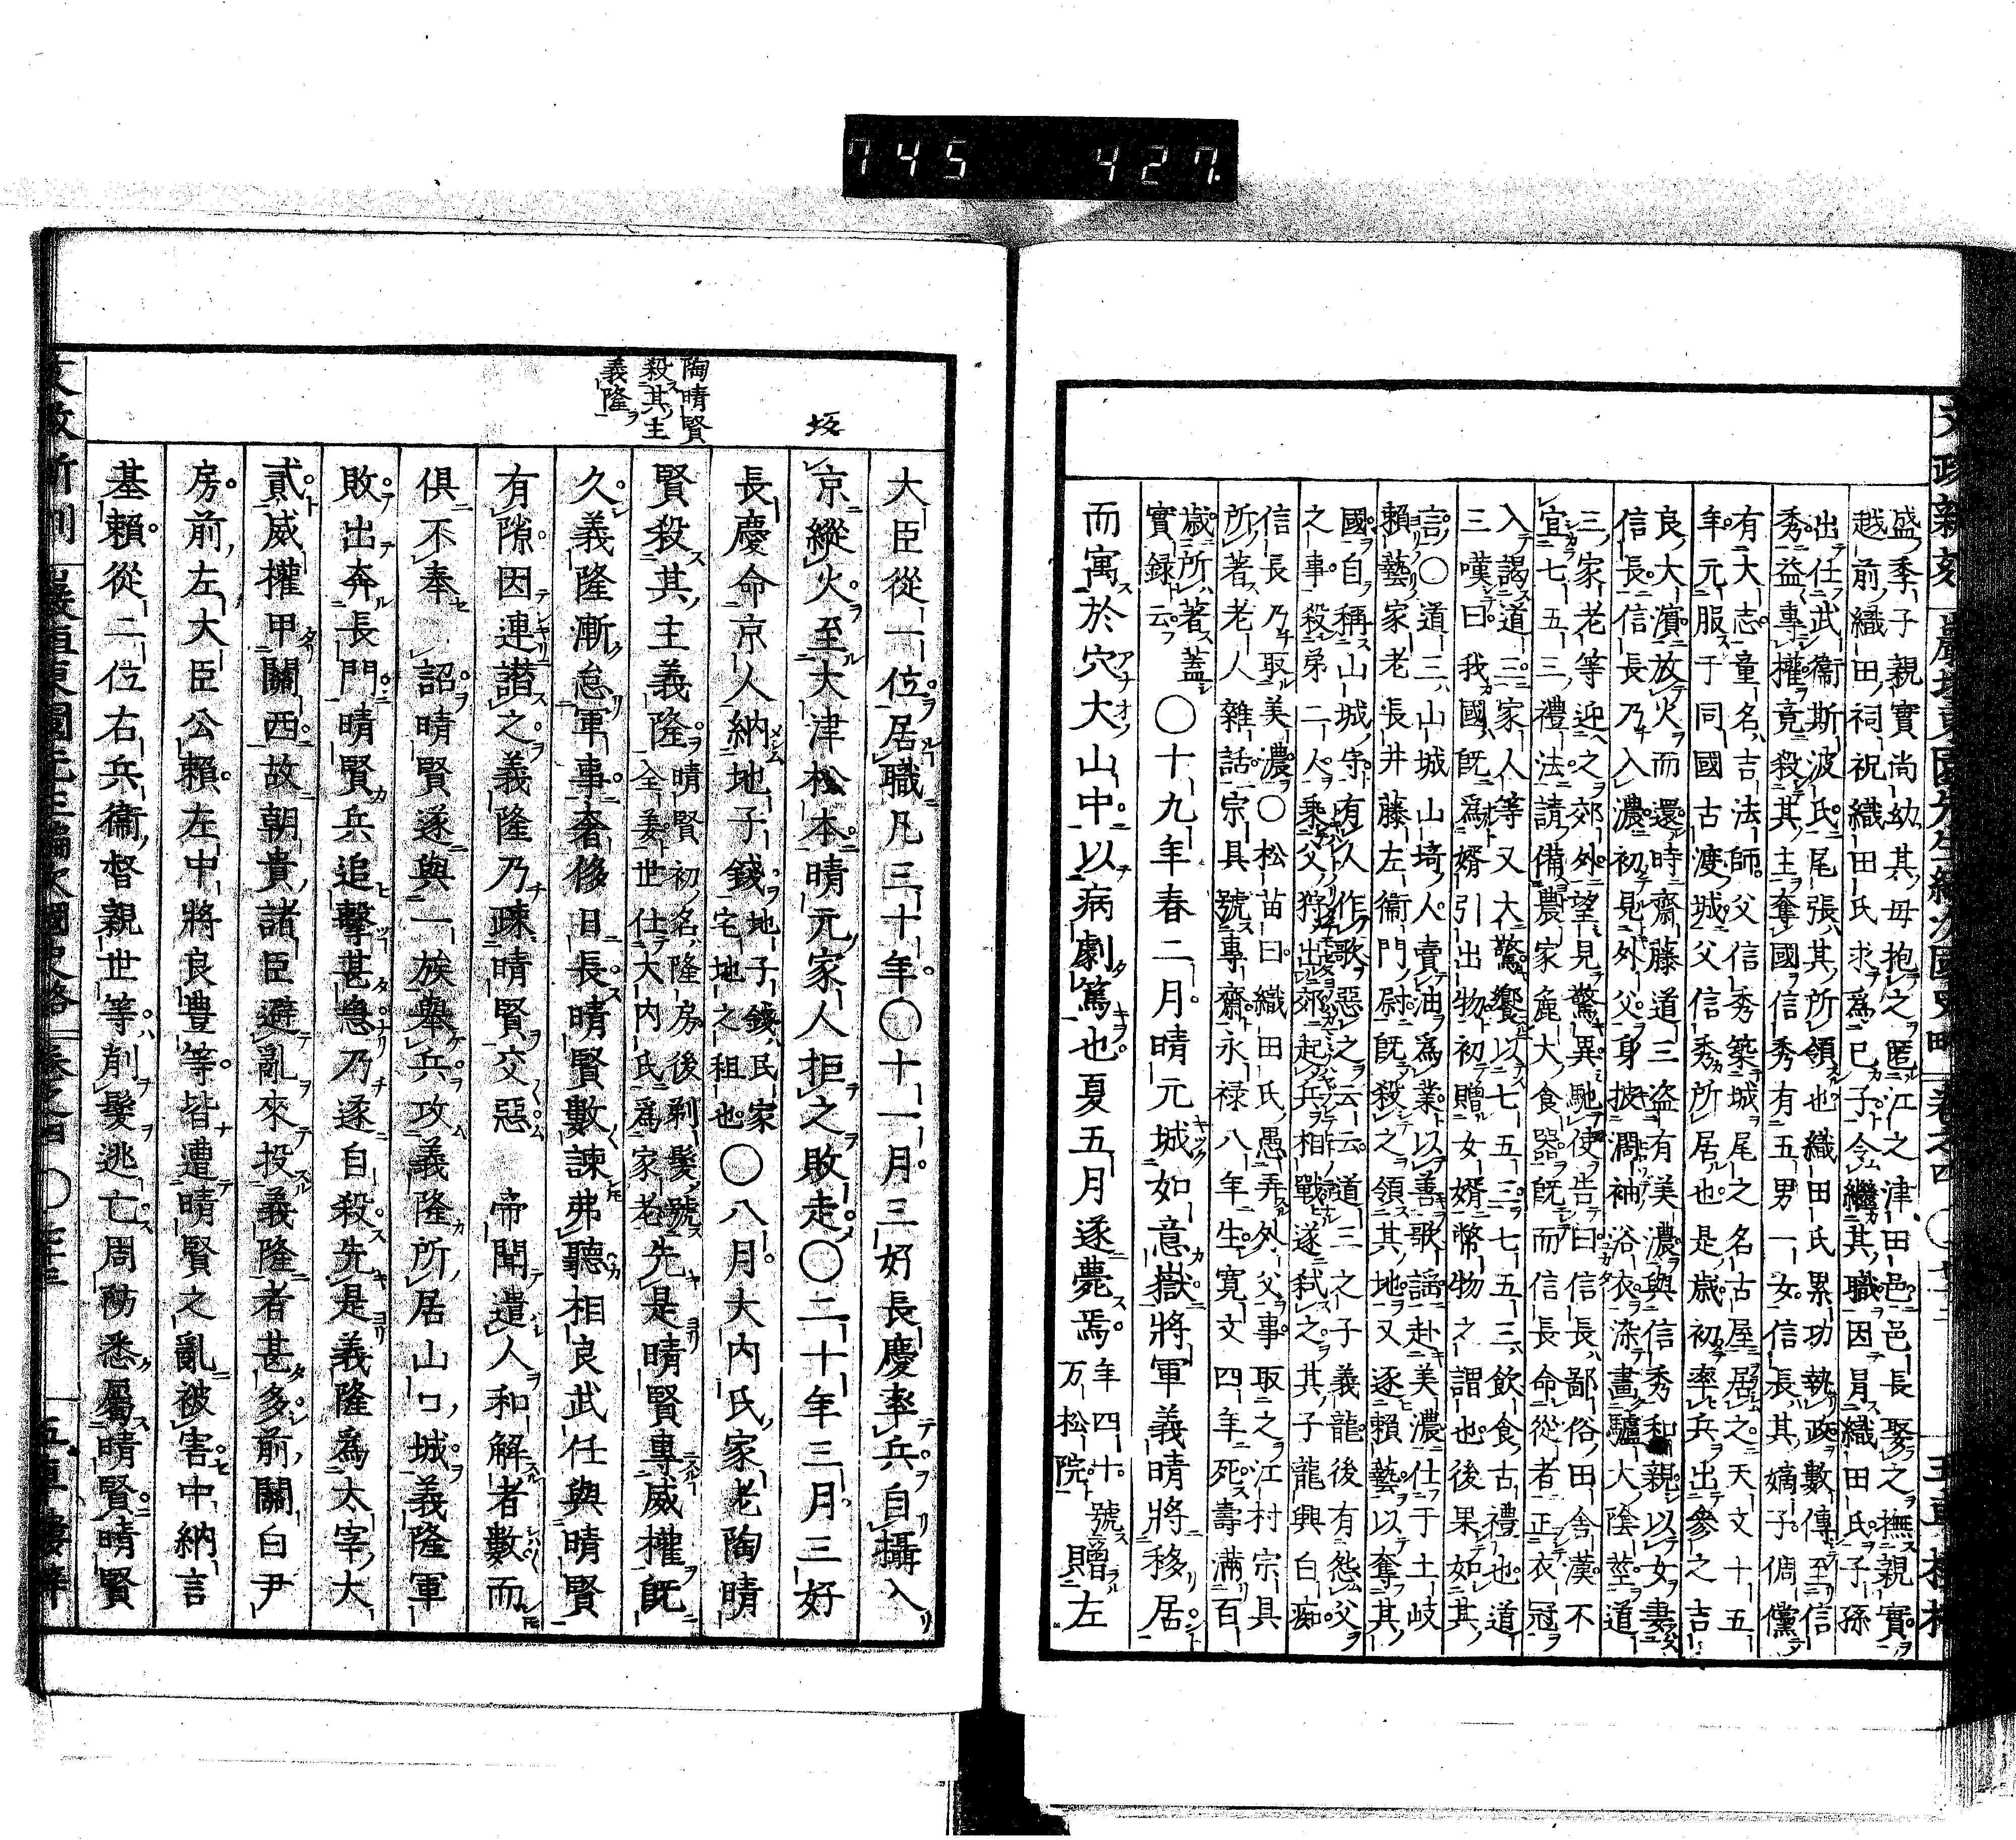 745 427
盛季子親實尚幼其母抱之匿江之津田邑邑長娶之撫親實
越前織田祠祝織田氏求爲己子令繼其職因冐織田氏子孫
出任武衞斯波氏尾張其所領也織田氏累功執政數傳至信
秀益專權竟殺其主奪國信秀有五男一女信長其嫡子倜儻
有大志童名吉法師父信秀築城尾之名古屋居之天文十五
年元服于同國古渡城父信秀所居也是歳初率兵出參之吉
良大濱放火而還時齋藤道三盗有美濃與信秀和親以女妻
信長信長乃入濃初見外父身披濶袖浴衣染畫驢大陰莖道
三家老等迎之郊外望見驚異馳使告曰信長鄙俗田舎漢不
宜七五三禮法請備農家麁大食器既而信長命從者正衣冠
入謁道三家人等又大驚饗以七五三七五三飲食古禮也道
三嘆曰我國既爲婿引出物初贈女婿幣物之謂也後果如其
言〇道三山城山埼人賣油爲業以善歌謡赴美濃仕于土岐
賴藝家老長井藤左衞門尉既殺之領其地又逐賴藝以奪其
國自稱山城守有人作歌惡之云云道三之子義龍後有怨父
之事殺弟二人乘父狩出郊起兵相戰遂弑之其子龍興白痴
信長乃取美濃〇松苗曰織田氏愚弄外父事取之江村宗具
所著老人雜話宗具號專齋永禄八年生寛文四年死壽滿百
歳所著蓋
實録云
〇十九年春二月晴元城如意嶽將軍義晴將移居
而寓於穴大山中以病劇篤也夏五月遂薨焉
年四十號
万松院
贈左
陶晴賢
殺其主
義隆
坂
大臣從一位居職凡三十年〇十一月三好長慶率兵自攝入
京縱火至大津松本晴元家人拒之敗走〇二十年三月三好
長慶命京人納地子錢
地子錢民家
宅地之租也
〇八月大内氏家老陶晴
賢殺其主義隆
晴賢初名隆房後剃髮號
全姜世仕大内氏爲家老
先是晴賢專威權既
久義隆漸怠軍事奢侈日長晴賢數諫弗聽相良武任與晴賢
有隙因連譛之義隆乃疎晴賢交惡　帝聞遣人和解者數而
俱不奉　詔晴賢遂與一族舉兵攻義隆所居山口城義隆軍
敗出奔長門晴賢兵追擊甚急乃遂自殺先是義隆爲太宰大
貳威權甲關西故朝貴諸臣避亂來投義隆者甚多前關白尹
房前左大臣公賴左中將良豊等皆遭晴賢之亂被害中納言
基賴從二位右兵衞督親世等削髮逃亡周防悉屬晴賢晴賢